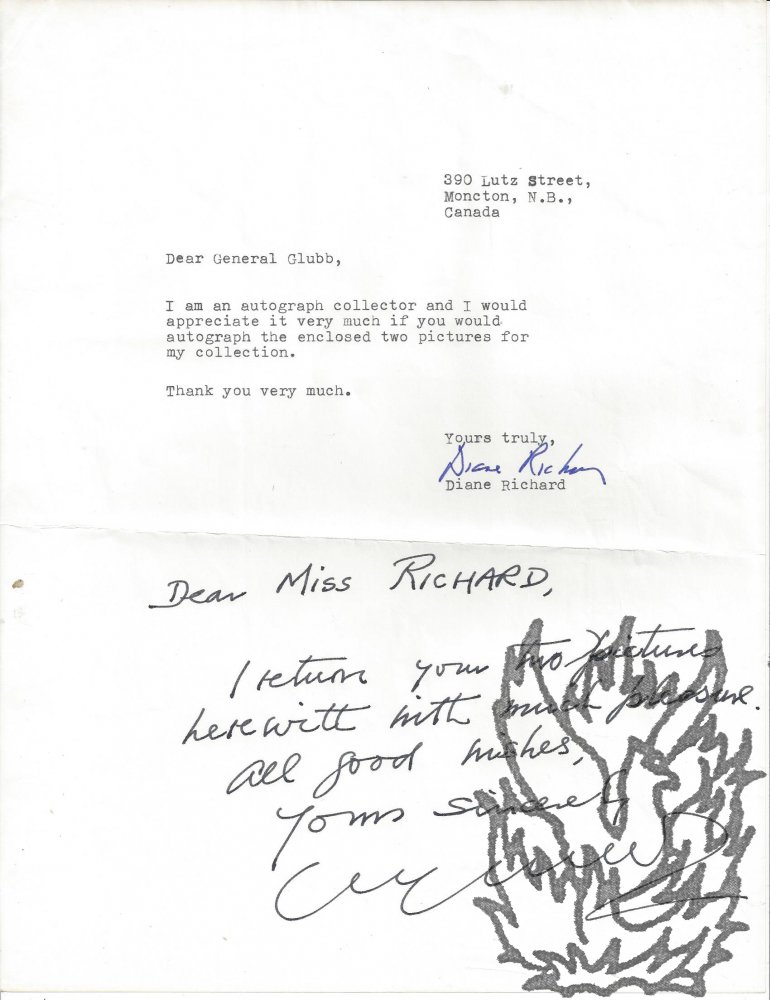 390 Lutz Street,
Moncton, N.B.,
Canada
Dear General Glubb,
I am an autograph collector and I would
appreciate it very much if you would
autograph the enclosed two pictures for
my collection.
Thank you very much.
Yours truly,
Diane Richard
Diane Richard
Dear Miss RICHARD,
I return your two pictures
herewith with much pleasure.
All good wishes,
Yours sincerely